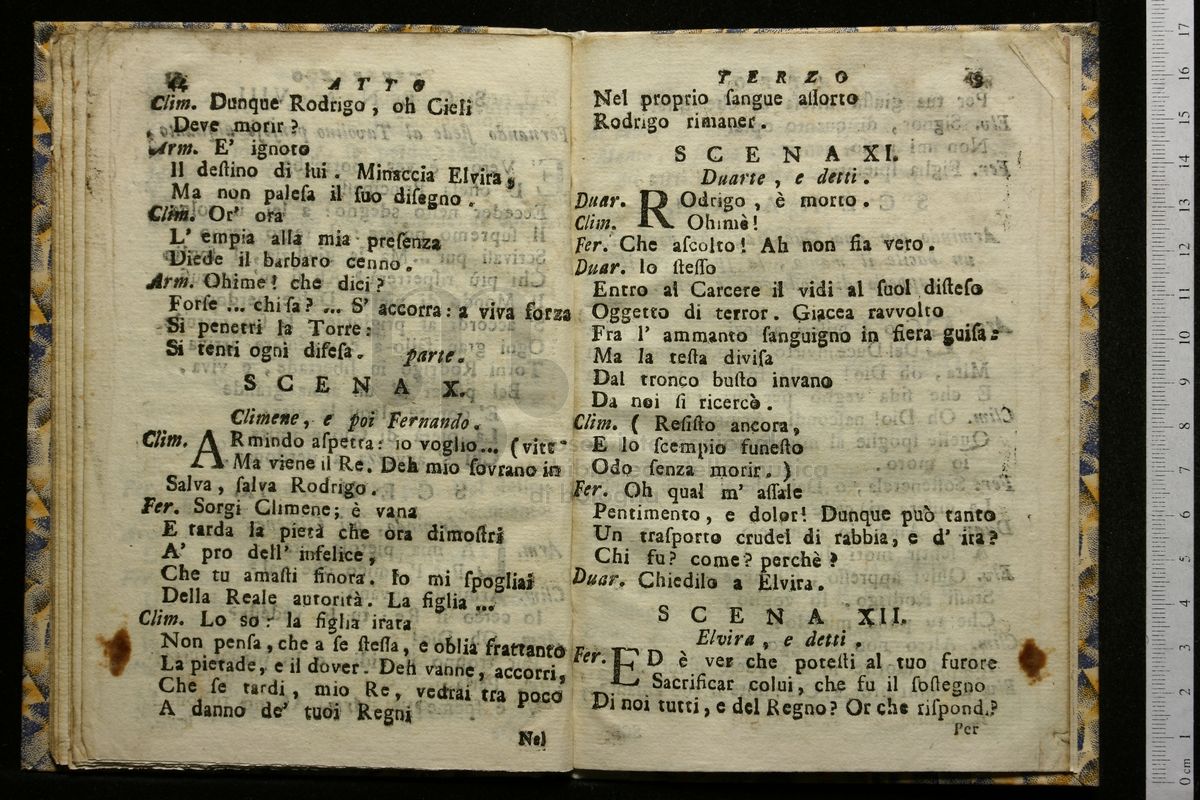 44 ATTO
Clim. Dunque Rodrigo, oh Cieli
Deve morir?
Arm. E' ignoto
Il deſtino di lui. Minaccia Elvira,
Ma non paleſa il ſuo diſegno.
Clim. Or' ora
L' empia alla mia preſenza
Diede il barbaro cenno.
Arm. Ohime! che dici?
Forſe ... chi ſa? ... S' accorra: a viva forza
Si penetri la Torre:
Si tenti ogni difeſa. parte.
SCENA X.
Climene, e poi Fernando.
Clim. ARmindo aſpetta: io voglio... (vite
Ma viene il Re. Deh mio ſovrano in
Salva, ſalva Rodrigo.
Fer. Sorgi Climene; è vana
E tarda la pietà che ora dimoſtri
A' pro dell' infelice,
Che tu amaſti finora. Io mi ſpogliai
Della Reale autorità. La figlia ...
Clim. Lo so: la figlia irata
Non penſa, che a ſe ſteſſa, e oblia frattanto
La pietade, e il dover. Deh vanne, accorri,
Che ſe tardi, mio Re, vedrai tra poco
A danno de' tuoi Regni
Nel
TERZO
Nel proprio ſangue aſſorto
Rodrigo rimaner.
SCENA XI.
Duarte, e detti.
Duar. ROdrigo, è morto.
Clim. Ohimè!
Fer. Che aſcolto! Ah non ſia vero.
Duar. Io ſteſſo
Entro al Carcere il vidi al ſuol diſteſo
Oggetto di terror. Giacea ravvolto
Fra l' ammanto ſanguigno in fiera guiſa:
Ma la teſta diviſa
Dal tronco buſto invano
Da noi ſi ricercò.
Clim. ( Reſiſto ancora,
E lo ſcempio funeſto
Odo ſenza morir. )
Fer. Oh qual m' aſſale
Pentimento, e dolor! Dunque può tanto
Un traſporto crudel di rabbia, e d' ira?
Chi fu? come? perchè?
Duar. Chiedilo a Elvira.
SCENA XII.
Elvira, e detti.
Fer. ED è ver che poteſti al tuo furore
Sacrificar colui, che fu il ſoſtegno
Di noi tutti, e del Regno? Or che riſpond.?
Per